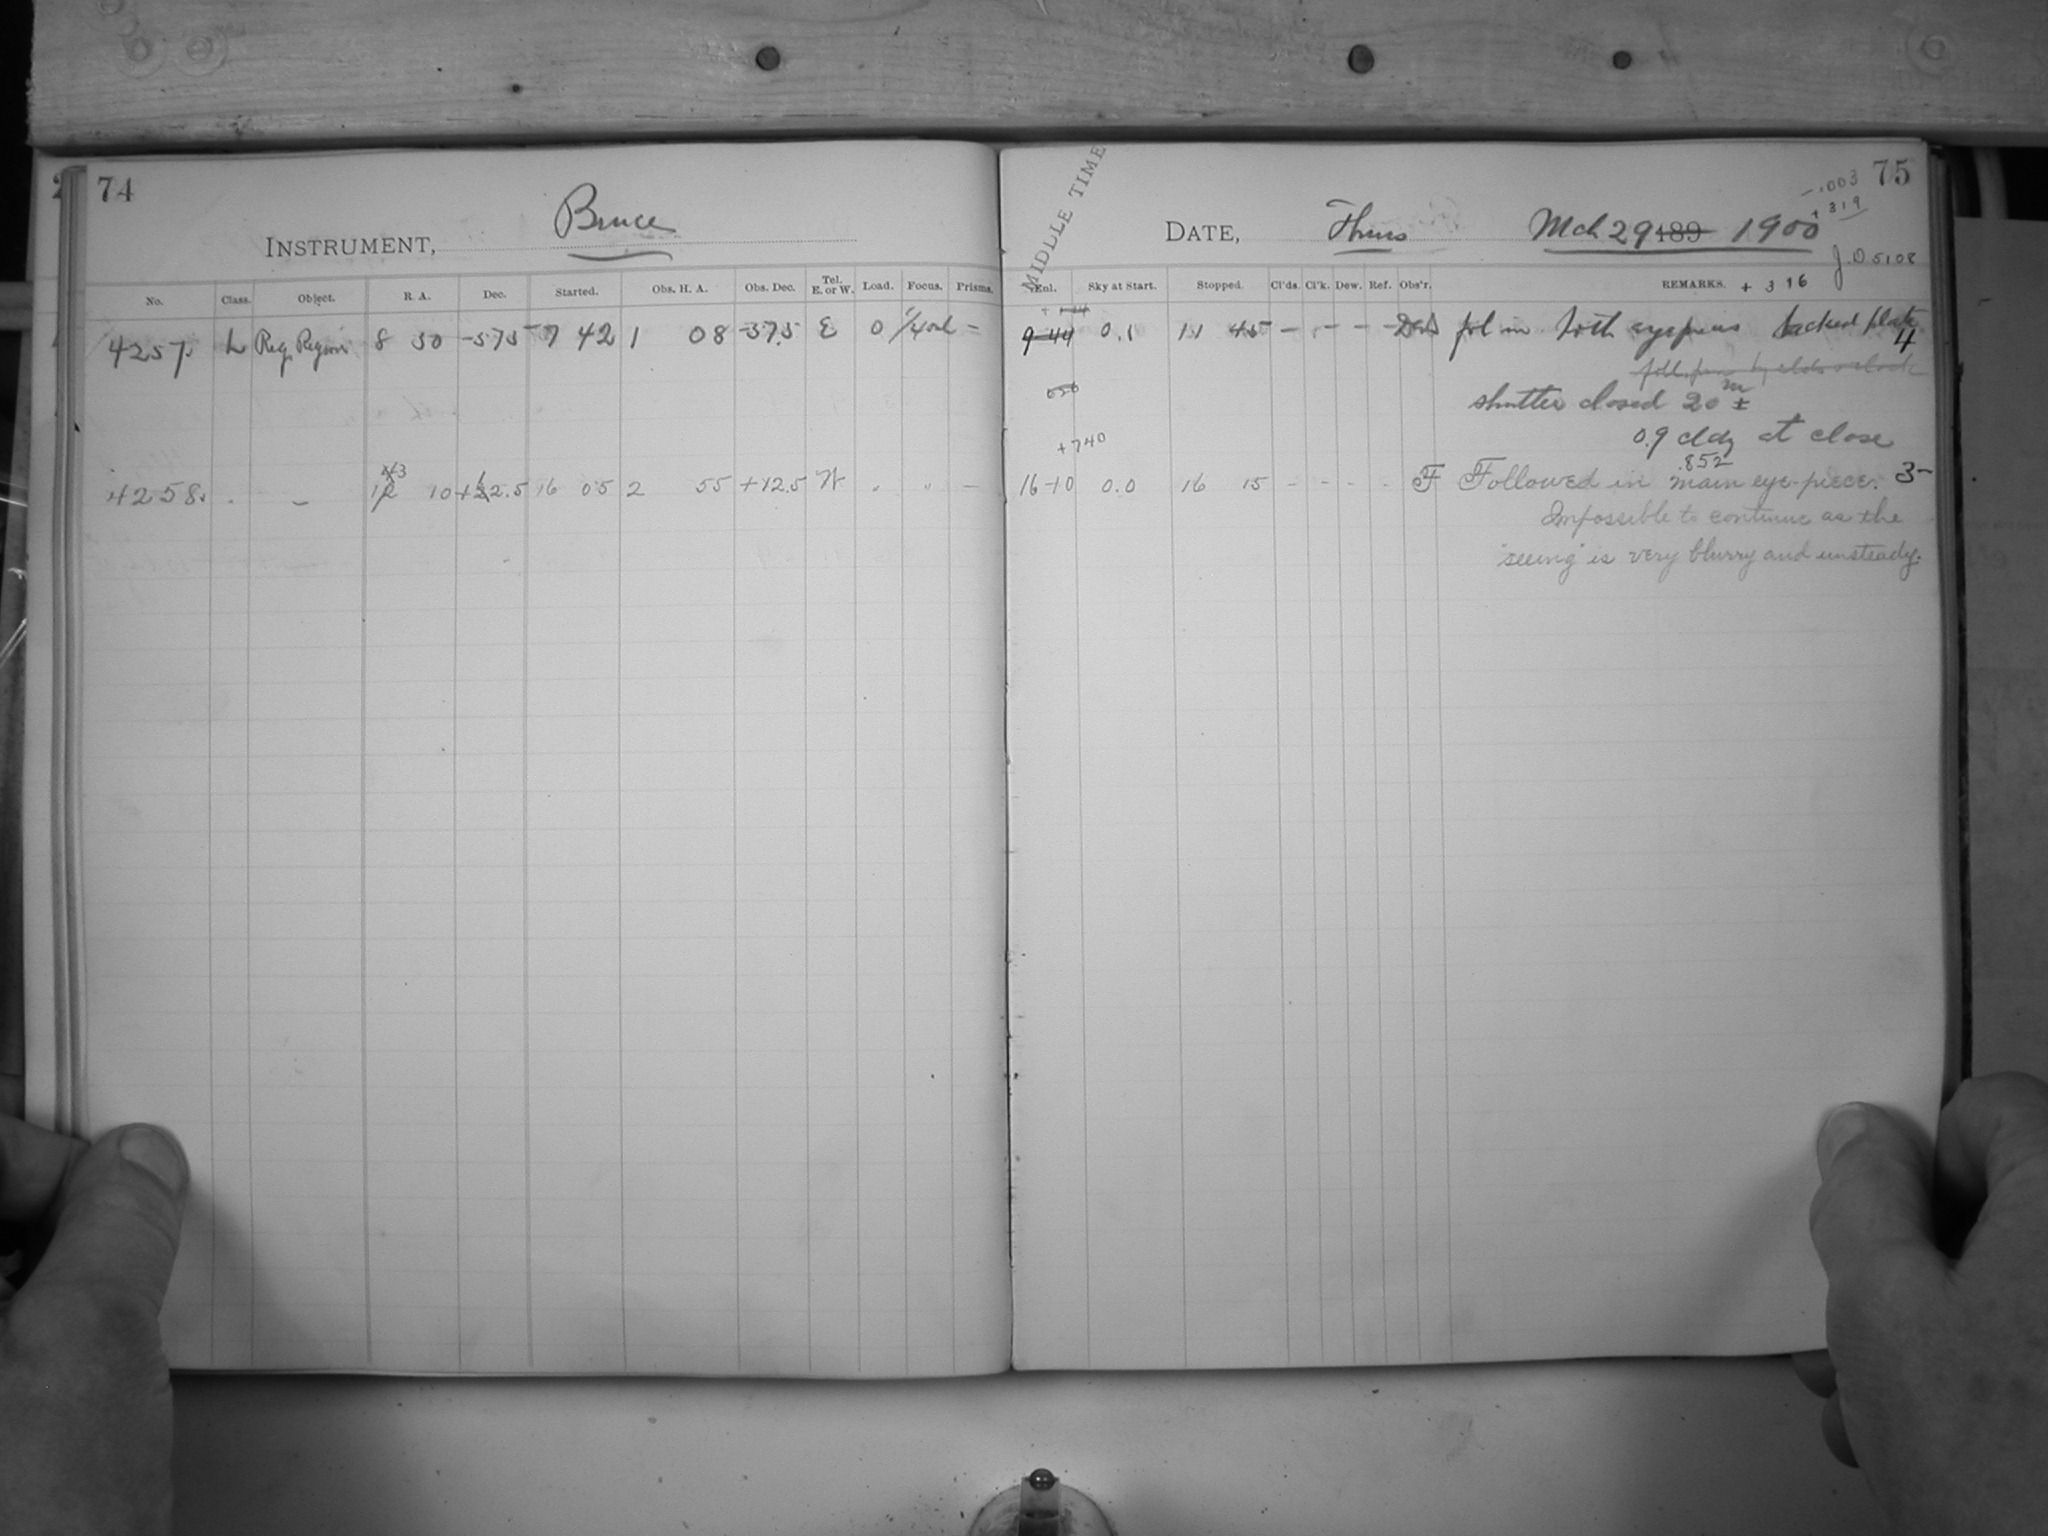 74
INSTRUMENT, Bruce
No. Class. Object. R. A. Dec. Started. Obs. H. A. Obs. Dec. Tel. E. or W. Load. Focus. Prisms.
4257. L Reg. Region 8 50 -57.5 7 42 1 08 -57.5 E 0 -
43
4258. - 10 2.5 16 05 2 55 +12.5 W " " -
75
-.003
+319
MIDDLE TIME
DATE, Thurs Mch 29 189 1900
J.D 5108
Enl. Sky at Start. Stopped. Cl'ds. Cl'k. Dew. Ref. Obs'r. REMARKS. + 316
9 44 0.1 11 45 - - - - fol in both eyepieces backed plate
4
shutter closed 20 m ±
0.9 cldy at close
+740
.852
16-10 0.0 16 15 - - - - F Followed in main eye-piece. 3-
Impossible to continue as the
"seeing" is very blurry and unsteady.